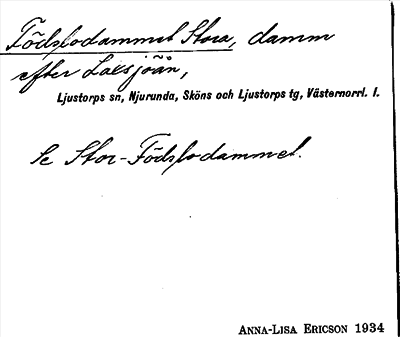 Födslodammet Stora, damm
efter Laxsjöån,
Ljustorps sn, Njurunda, Sköns och Ljustorps tg, Västernorrl. l.
Se Stor-Födslodammet.
ANNA-LISA ERICSON 1934